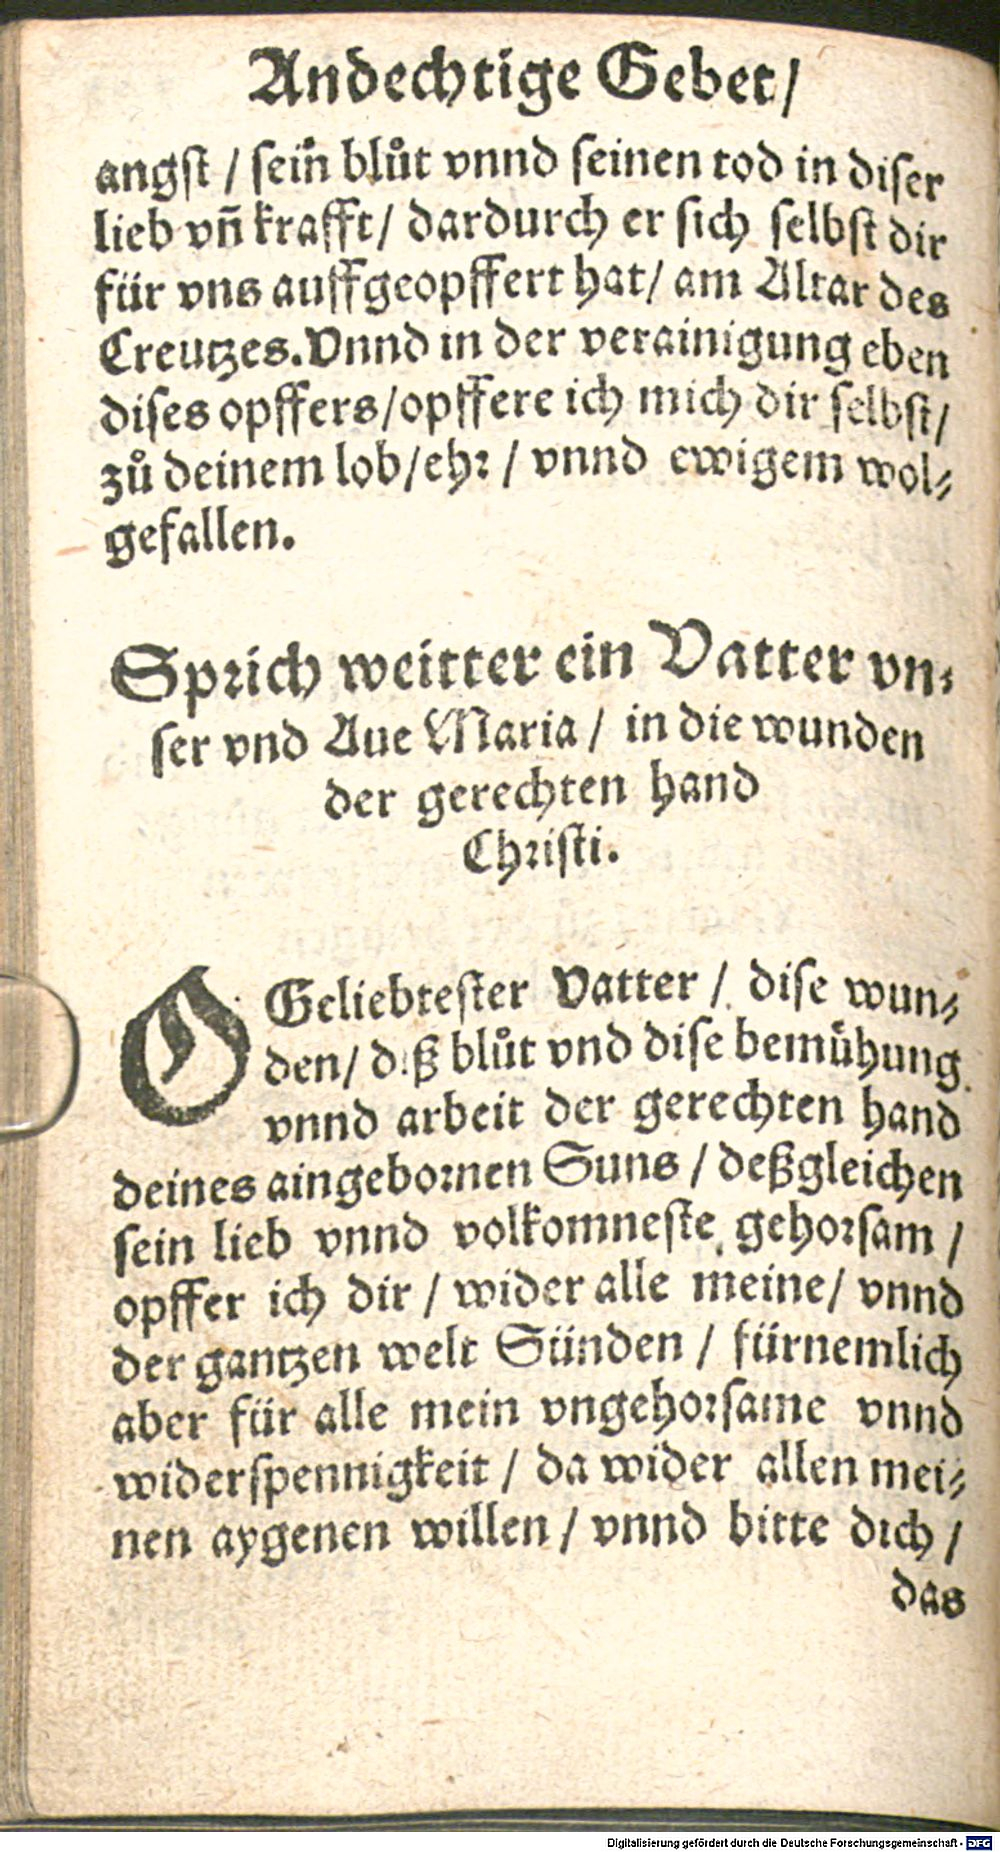 Andechtige Gebet/
angst / sein̄ blůt vnnd seinen tod in diser
lieb vn̄ krafft/ dardurch er sich selbst dir
für vns auffgeopffert hat/ am Altar des
Creutzes. Vnnd in der verainigung eben
dises opffers/opffere ich mich dir selbst/
zů deinem lob/ehr / vnnd ewigem wol⸗
gefallen.
Sprich weitter ein Vatter vn⸗
ser vnd Aue Maria / in die wunden
der gerechten hand
Christi.
O Geliebtester Vatter / dise wun⸗
den/ diß blůt vnd dise bemühung
vnnd arbeit der gerechten hand
deines aingebornen Suns / deßgleichen
sein lieb vnnd volkomneste gehorsam /
opffer ich dir / wider alle meine/ vnnd
der gantzen welt Sünden / fürnemlich
aber für alle mein vngehorsame vnnd
widerspennigkeit / da wider allen mei⸗
nen aygenen willen / vnnd bitte dich /
das
Digitalisierung gefördert durch die Deutsche Forschungsgemeinschaft - DFG